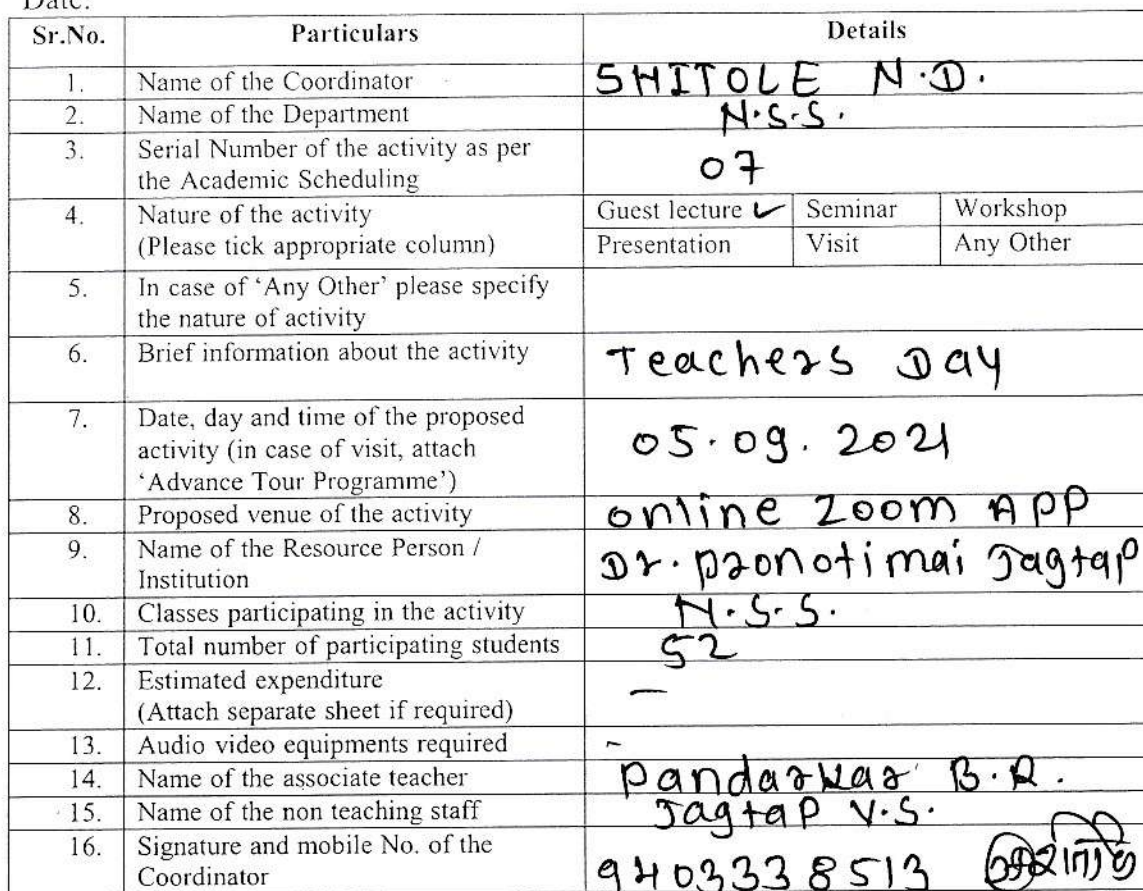 Date:
Sr.No. Particulars Details
1. Name of the Coordinator SHITOLE N.D.
2. Name of the Department N.S.S.
3. Serial Number of the activity as per
the Academic Scheduling 07
4. Nature of the activity Guest lecture ✓ Seminar Workshop
(Please tick appropriate column) Presentation Visit Any Other
5. In case of ‘Any Other’ please specify
the nature of activity
6. Brief information about the activity Teachers Day
7. Date, day and time of the proposed
activity (in case of visit, attach 05.09.2021
‘Advance Tour Programme’)
8. Proposed venue of the activity online Zoom APP
9. Name of the Resource Person /
Institution Dr. pronotimai Jagtap
10. Classes participating in the activity N.S.S.
11. Total number of participating students 52
12. Estimated expenditure –
(Attach separate sheet if required)
13. Audio video equipments required -
14. Name of the associate teacher Pandarkar B.R.
15. Name of the non teaching staff Jagtap V.S.
16. Signature and mobile No. of the
Coordinator 9403338513